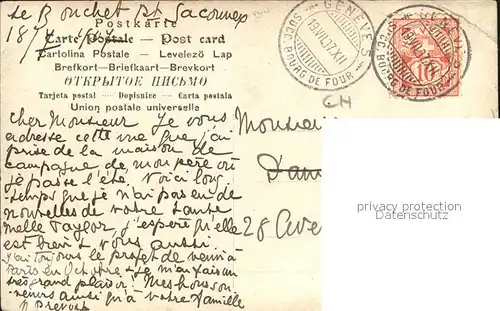 Le Bouchet Pt Saconnex
18/7 1907
Postkarte
Carte postale — Post card
Cartolina Postale — Levelező Lap
Brefkort—Briefkaart—Brevkort
ОТКРЫТОЕ ПИСЬМО
Tarjeta postal — Dopisnice — Carta postala
Union postale universelle
GENÈVE 5
19.VII.07.XII
SUCC. BOURG DE FOUR
GENÈVE
19.VII.07.XII
SUCC. BOURG DE FOUR
10
Cher Monsieur Je vous
adresse cette vue que j'ai
prise de la maison de
campagne de mon père où
je passe l'été. Voici long
temps que je n'ai pas eu de
nouvelles de votre tante
Melle Taylor, j'espère qu'elle
est bien & vous aussi.
J'ai toujours le projet de venir à
Paris en Octobre & je m'en fais un
très grand plaisir! Mes bons sou
venirs ainsi qu'à votre famille
Prevost
Monsie
28 Ave
privacy protection
Datenschutz